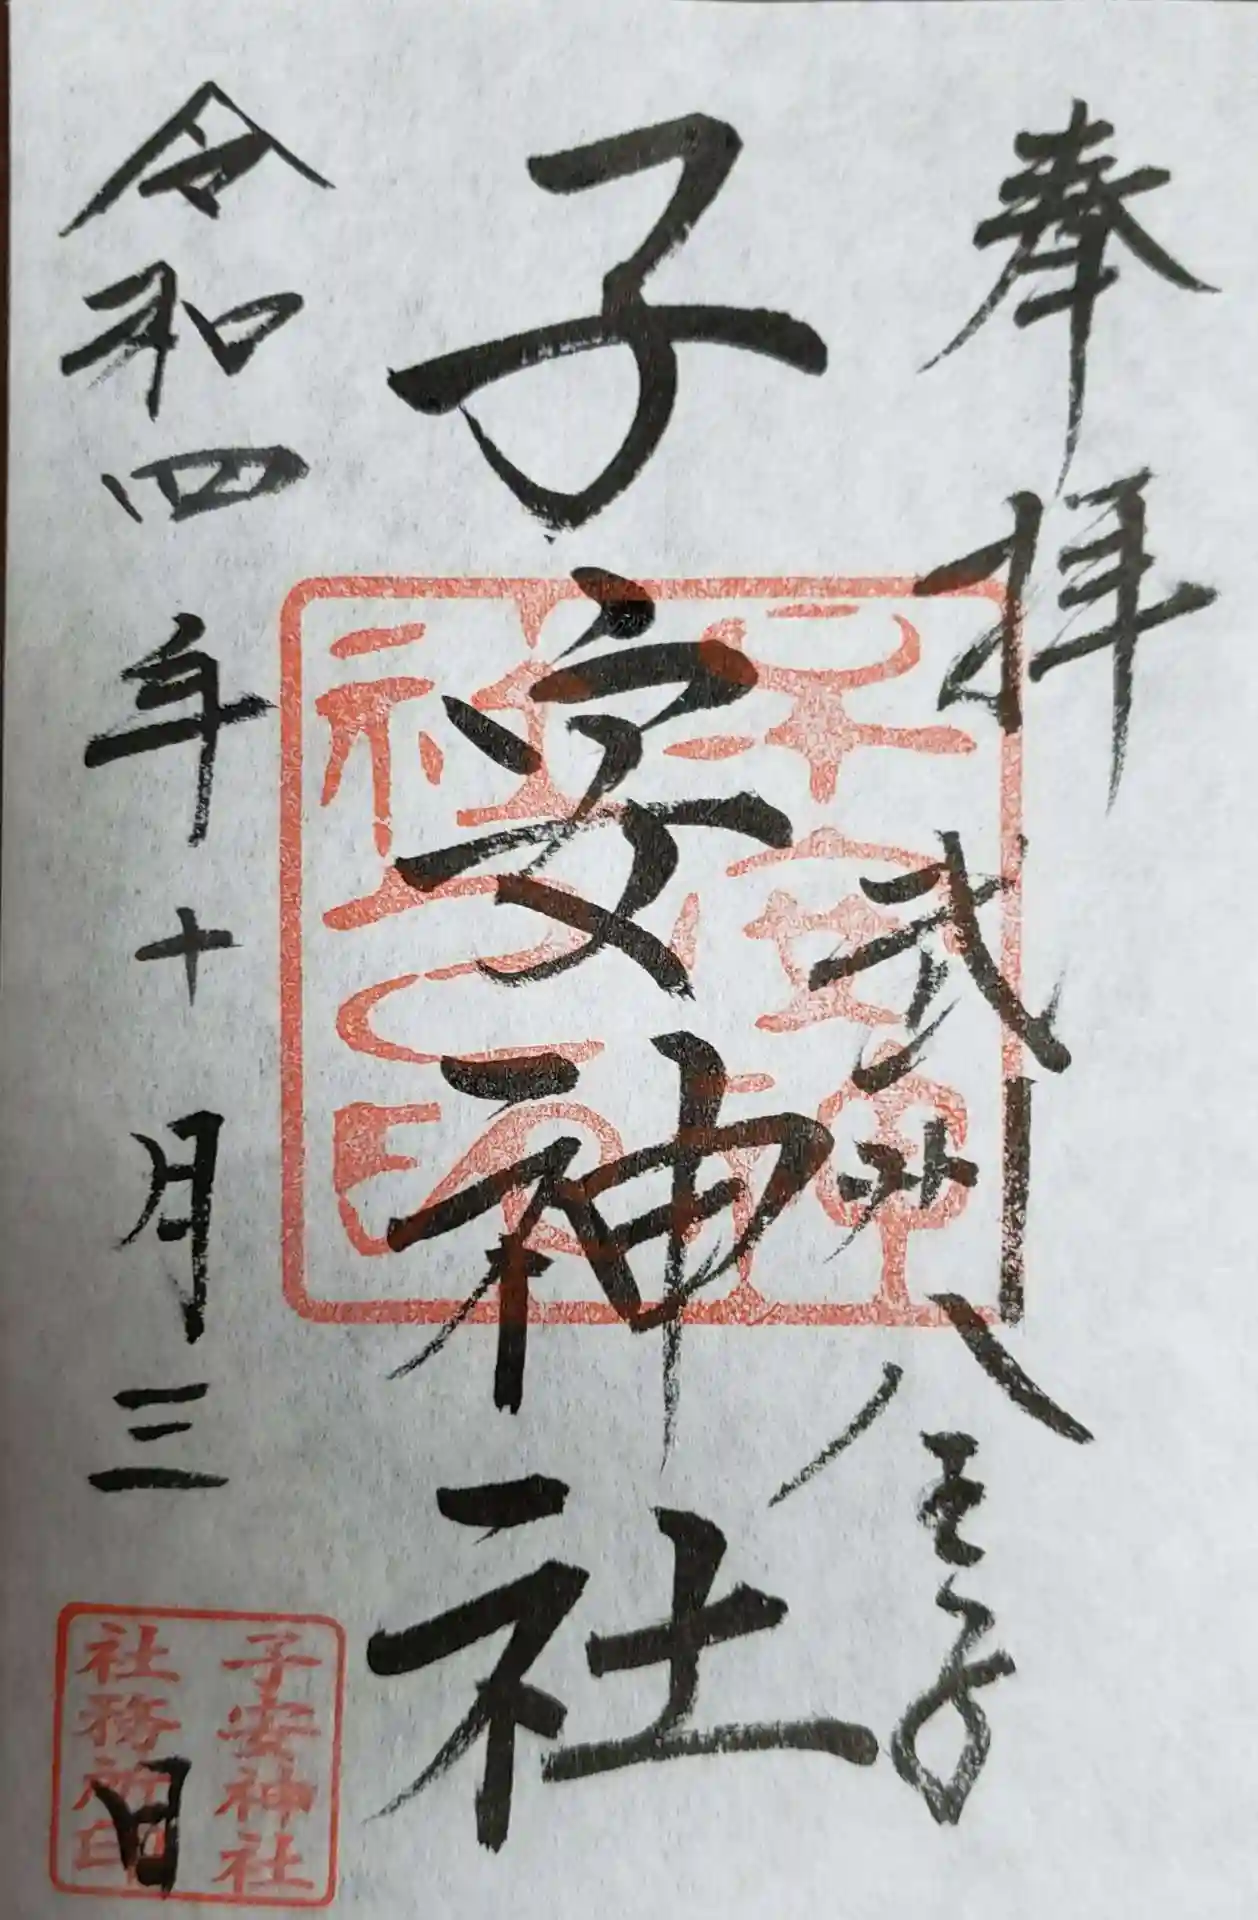 奉拝
武州八王子
子安神社
令和四年十月三日
子安神社
社務所印